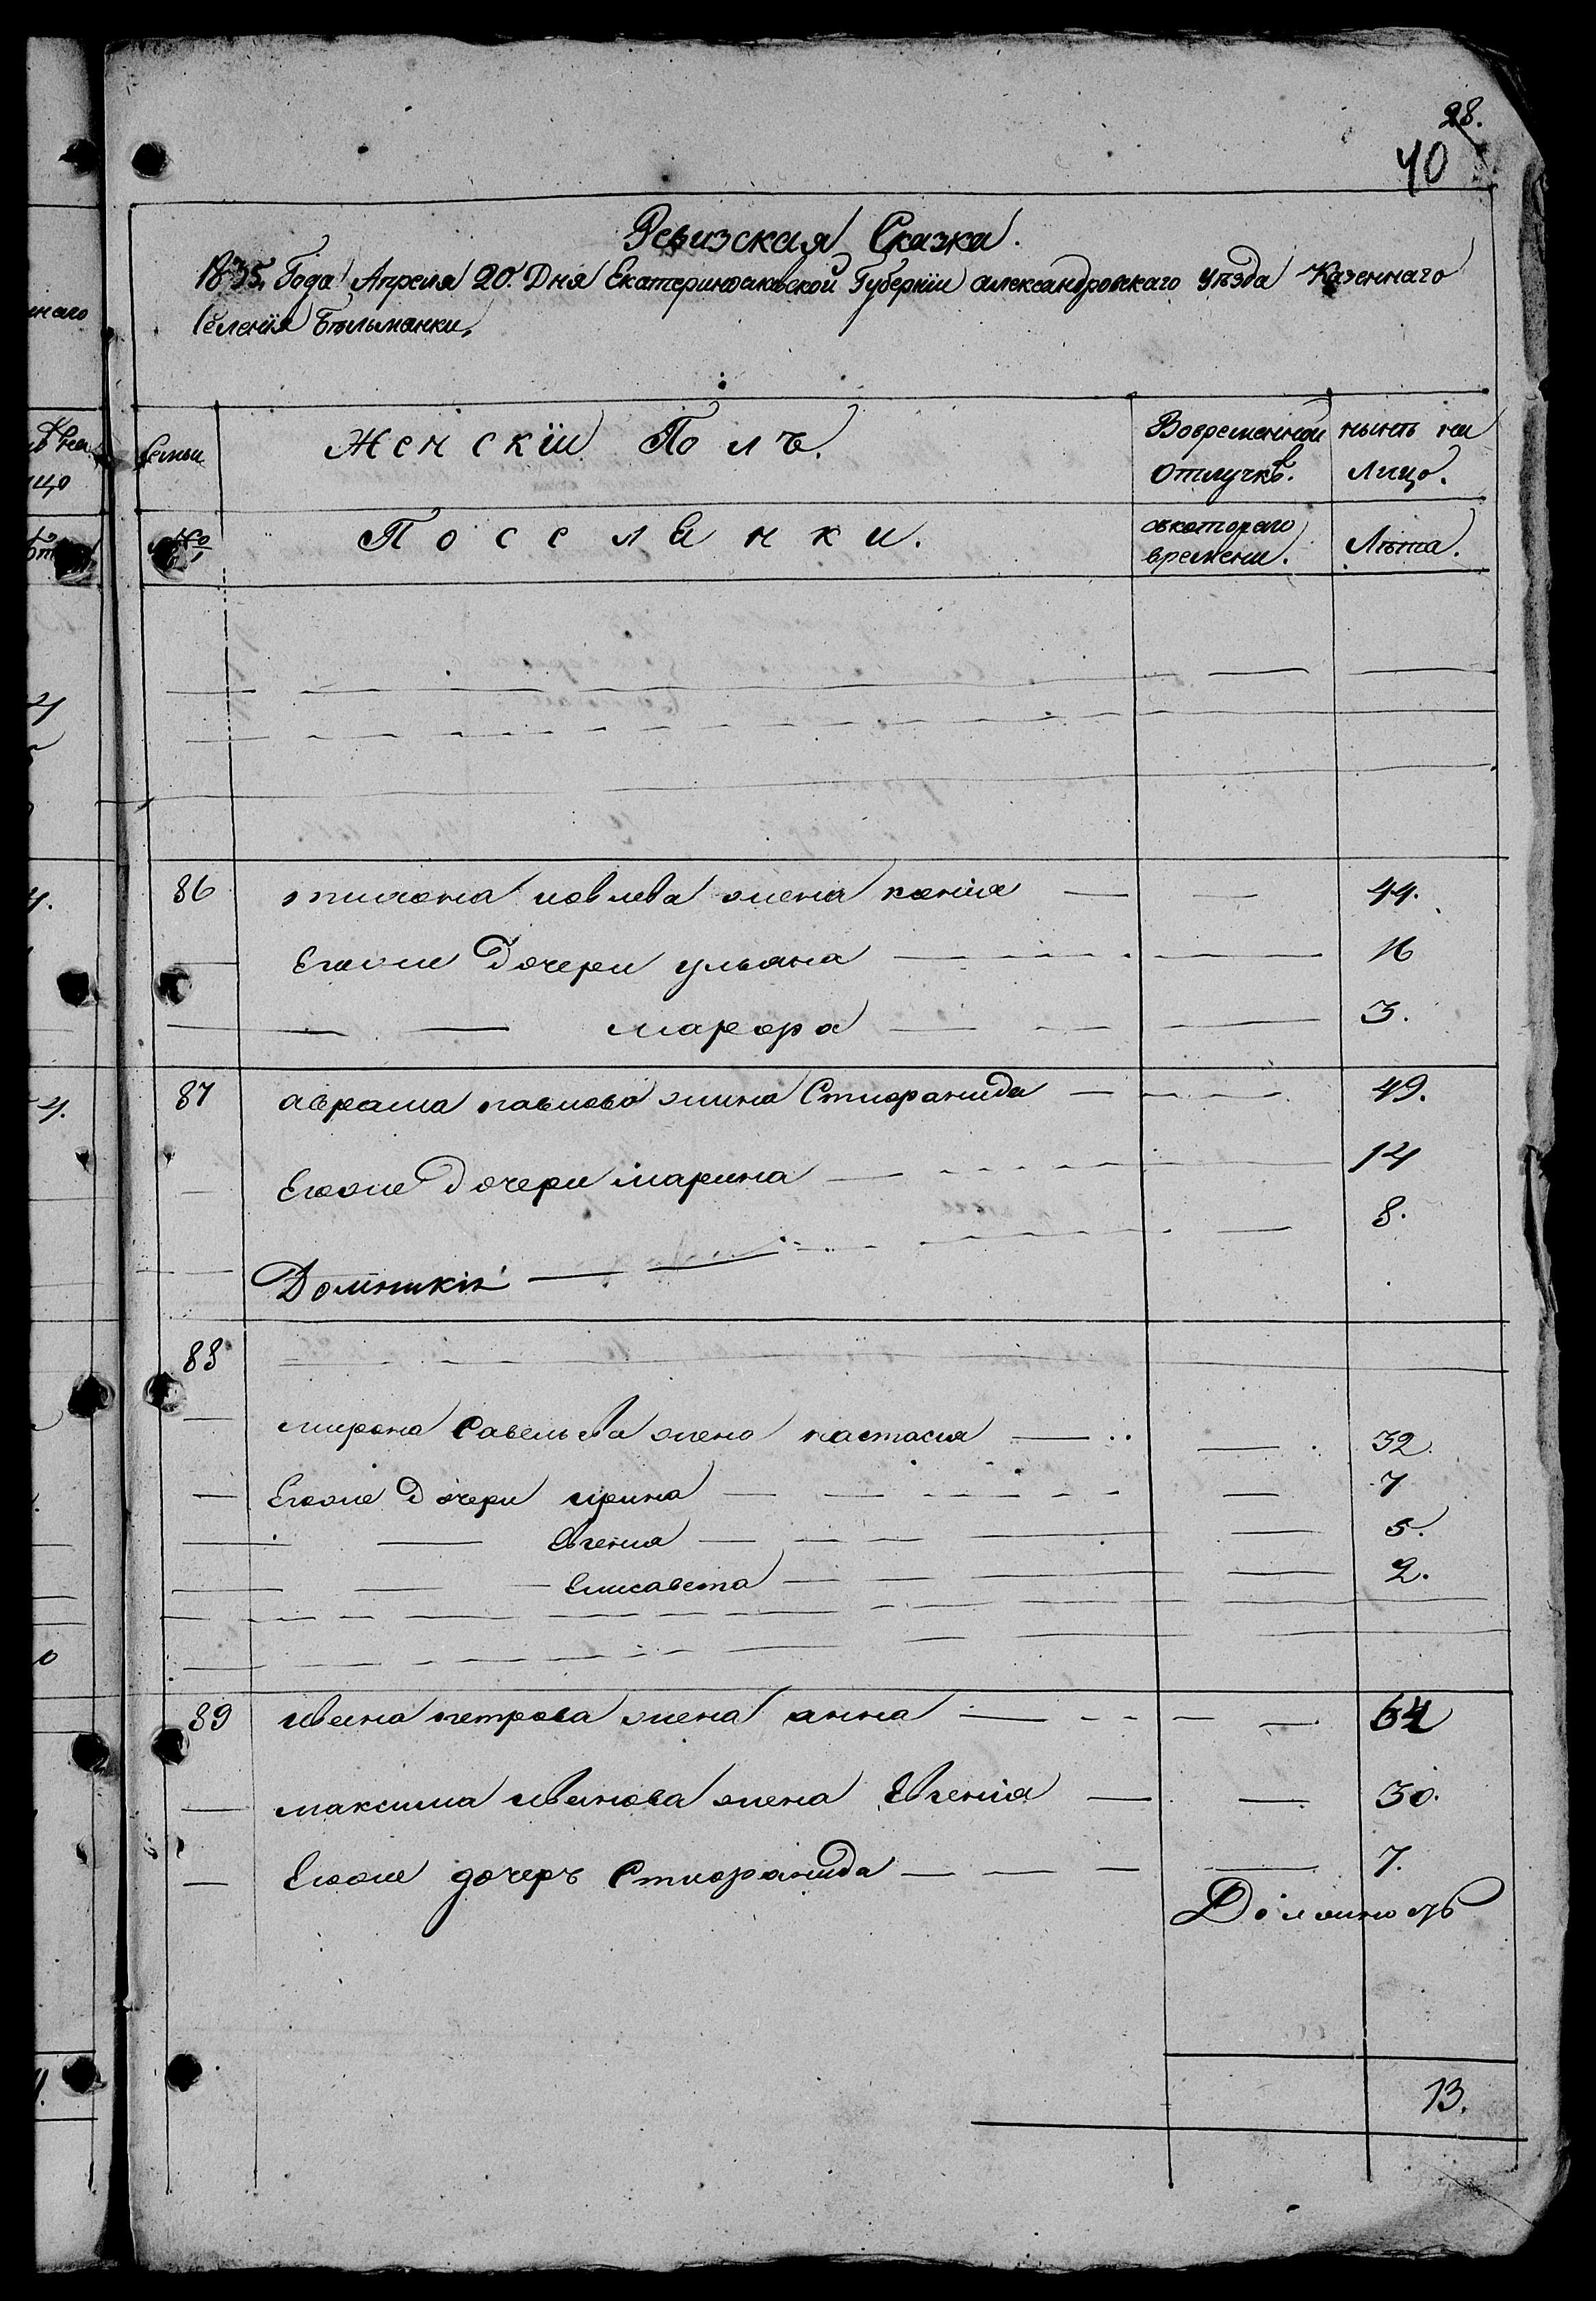 28.
40
Ревизская Сказка.
1835, Года Апреля 20. Дня Екатеринославской Губернїи александровскаго уѣзда Казеннаго
Селенїя Бѣлыманки,
Семьи Женскїи Полъ. Вовременной отлучкѣ. нынѣ на Лицо.
№ Посселянки. скотораго времени. Лѣта.
86 жена ксенїя — — 44.
Егоже Дочери ульяна — — 16
— — марфа — — 3.
87 аврама павлова жина — — 49.
Егоже Дочери марина — — 14
8.
Домникїи —
88
мирона Савельева жена настасия — — 32.
Егоже Дочери ирина — — 7
— Евгения — — 5.
— Елисавета — — 2.
89 ивана петрова жена анна — — 64
максима иванова жена Евгенїя — — 30.
Егоже дочерь — — 7.
13.